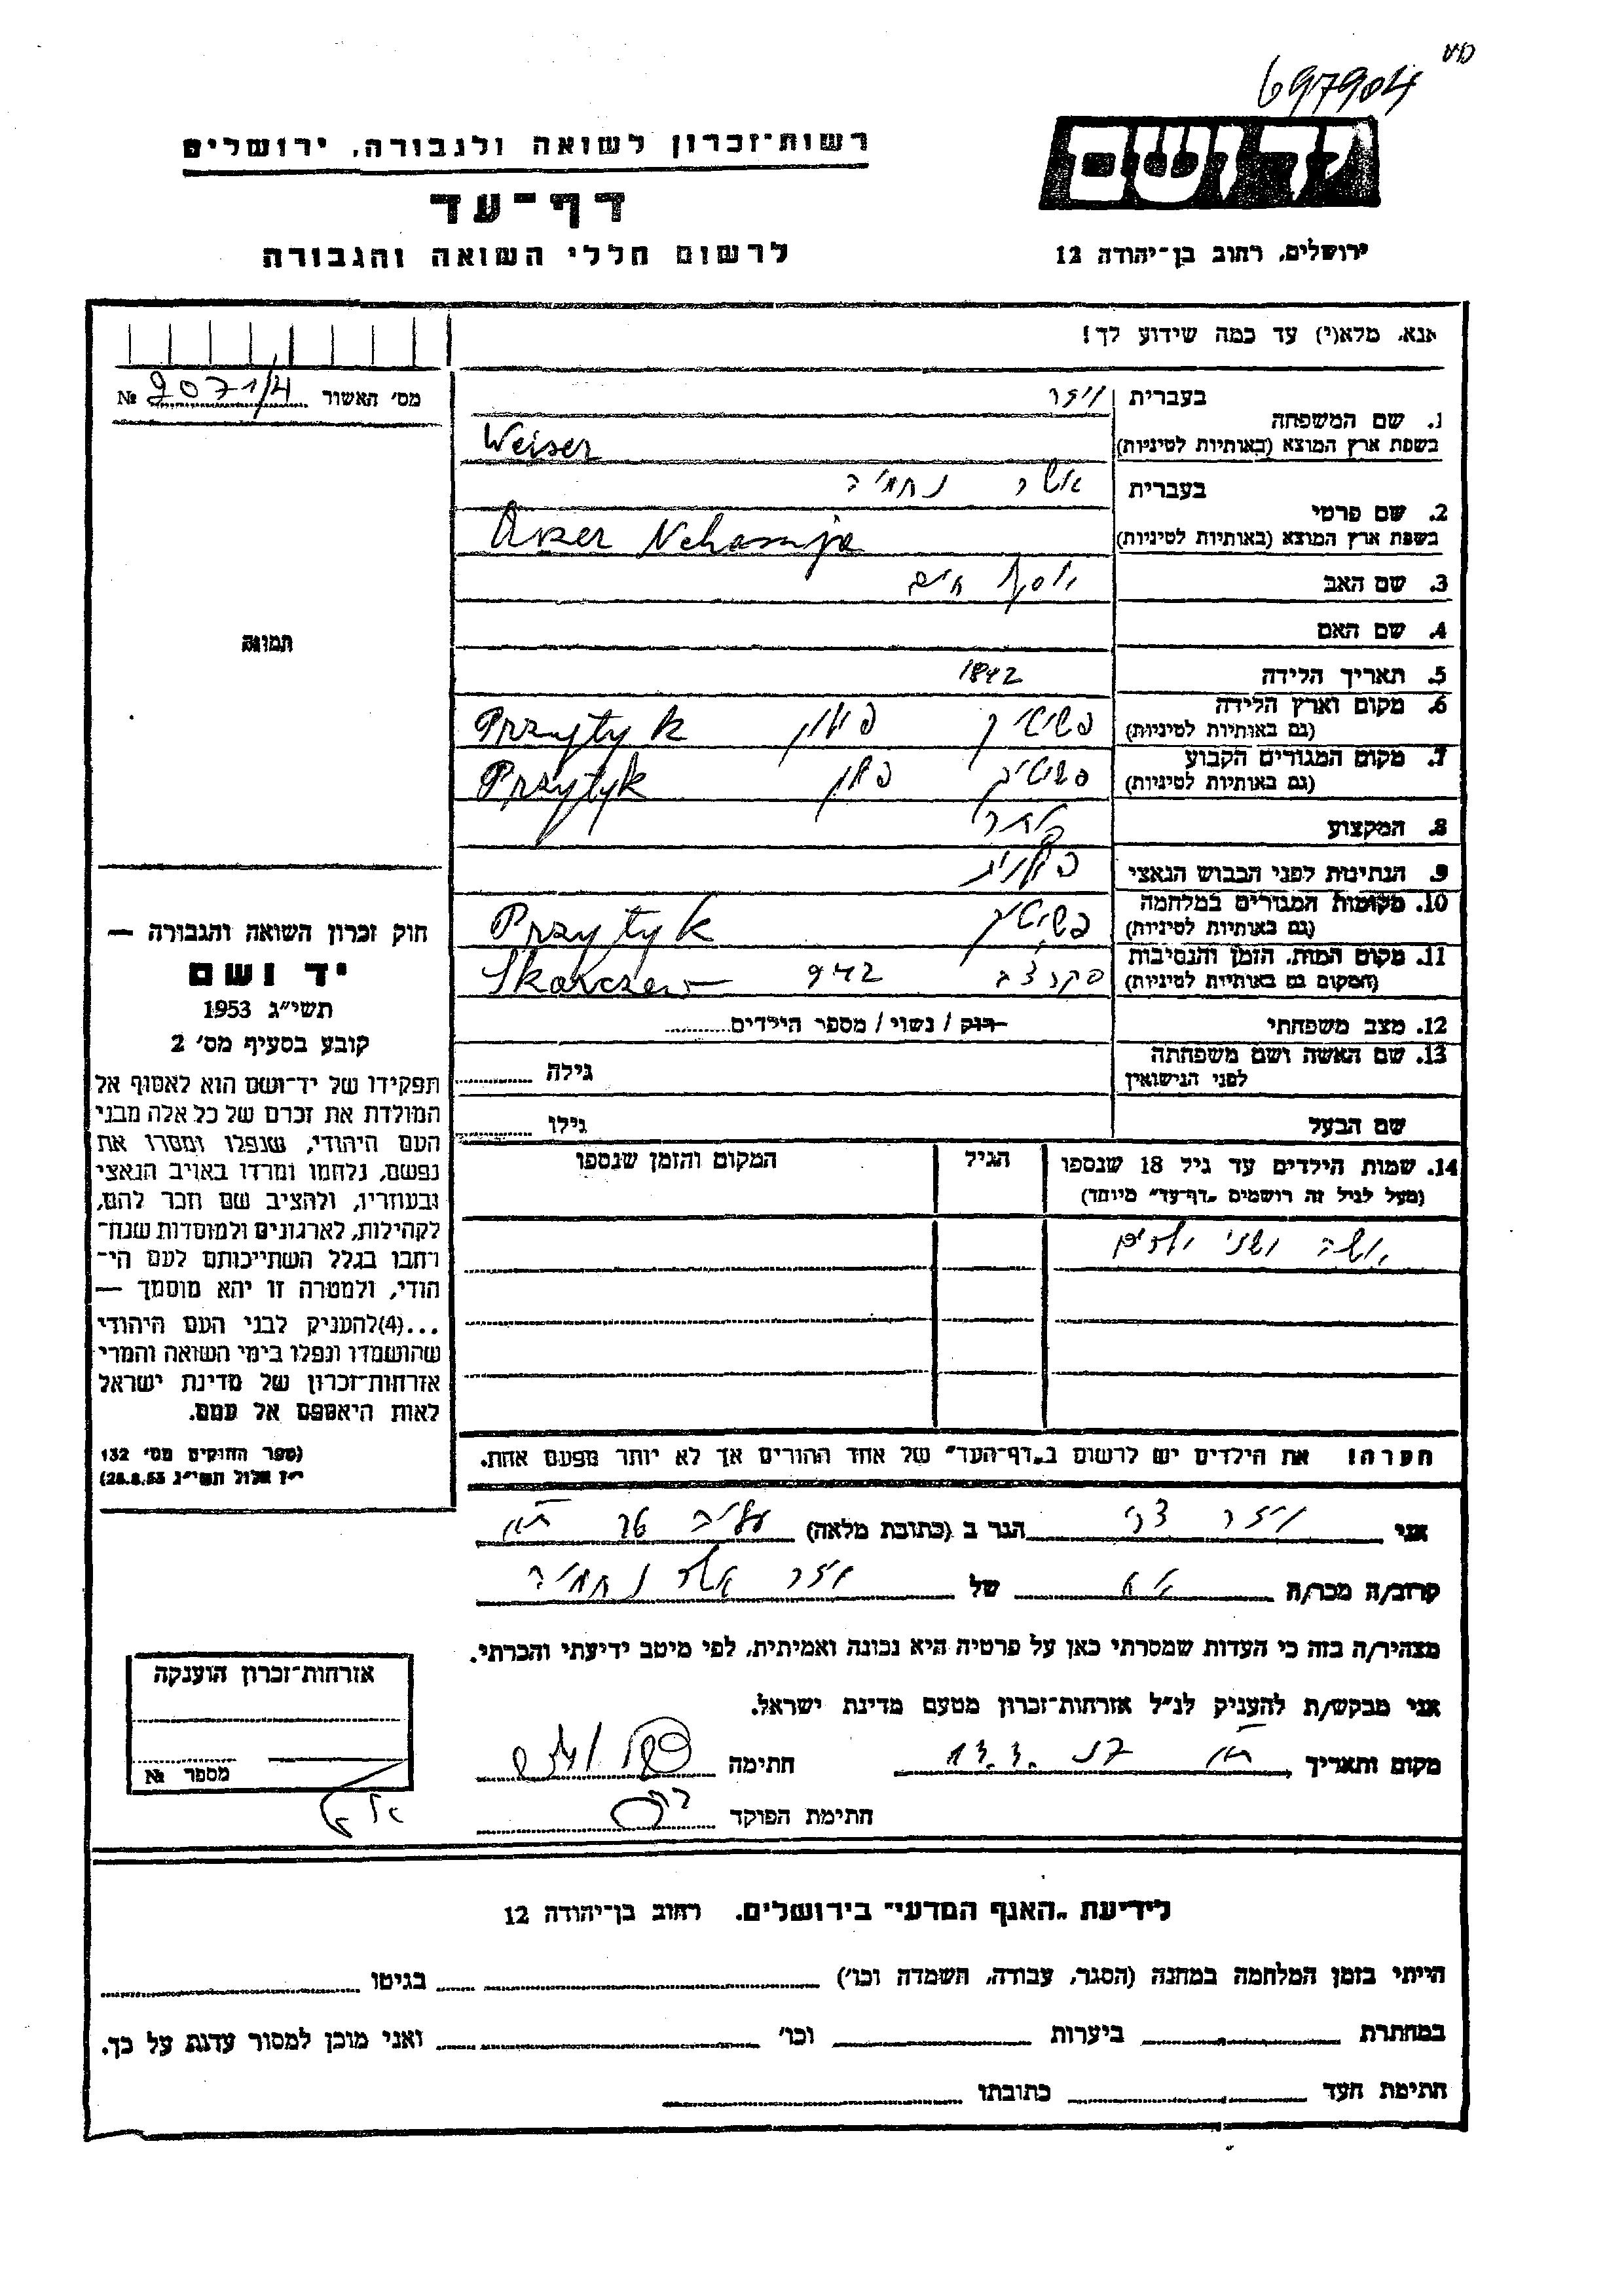 697904
יד ושם
ירושלים, רחוב בן־יהודה 12
רשות־זכרון לשואה ולגבורה, ירושלים
דף־עד
לרשום חללי השואה והגבורה
אנא, מלא(י) עד כמה שידוע לך!
מס' האשור № 2071/4
1. שם המשפחה בעברית ויזר
בשפת ארץ המוצא (באותיות לטיניות) Weiser
2. שם פרטי בעברית אשר נחמיה
בשפת ארץ המוצא (באותיות לטיניות) Nehamja
3. שם האב יוסף חיים
4. שם האם
5. תאריך הלידה 1842
6. מקום וארץ הלידה פשיטיק פולין Przytyk
(גם באותיות לטיניות)
7. מקום המגורים הקבוע פשיטיק פולין Przytyk
(גם באותיות לטיניות)
8. המקצוע
9. הנתינות לפני הכבוש הנאצי פולנית
10. מקומות המגורים במלחמה פשיטיק Przytyk
(גם באותיות לטיניות)
11. מקום המות, הזמן והנסיבות 942
(המקום גם באותיות לטיניות)
12. מצב משפחתי רוק / נשוי / מספר הילדים
13. שם האשה ושם משפחתה גילה
לפני הנישואין
שם הבעל גילו
14. שמות הילדים עד גיל 18 שנספו הגיל המקום והזמן שנספו
(מעל לגיל זה רושמים „דף־עד" מיוחד)
אשה ושני ילדים
תמונה
חוק זכרון השואה והגבורה —
יד ושם
תשי"ג 1953
קובע בסעיף מס' 2
תפקידו של יד־ושם הוא לאסוף אל
המולדת את זכרם של כל אלה מבני
העם היהודי, שנפלו ומסרו את
נפשם, נלחמו ומרדו באויב הנאצי
ובעוזריו, ולהציב שם וזכר להם,
לקהילות, לארגונים ולמוסדות שנח־
רבו בגלל השתייכותם לעם הי־
הודי, ולמטרה זו יהא מוסמך —
...(4)להעניק לבני העם היהודי
שהושמדו ונפלו בימי השואה והמרי
אזרחות־זכרון של מדינת ישראל
לאות היאספם אל עמם.
(ספר החוקים מס' 132
י"ז אלול תשי"ג 28.8.53)
הערה! את הילדים יש לרשום ב„דף־העד" של אחד ההורים אך לא יותר מפעם אחת.
אני ויזר צבי הגר ב (כתובת מלאה)
קרוב/ה מכר/ה של ויזר אשר נחמיה
מצהיר/ה בזה כי העדות שמסרתי כאן על פרטיה היא נכונה ואמיתית, לפי מיטב ידיעתי והכרתי.
אני מבקש/ת להעניק לנ"ל אזרחות־זכרון מטעם מדינת ישראל.
מקום ותאריך חתימה
חתימת הפוקד
אזרחות־זכרון הוענקה
מספר №
לידיעת „האגף המדעי" בירושלים, רחוב בן־יהודה 12
הייתי בזמן המלחמה במחנה (הסגר, עבודה, השמדה וכו') בגיטו
במחתרת ביערות וכו' ואני מוכן למסור עדות על כך.
חתימת העד כתובתו